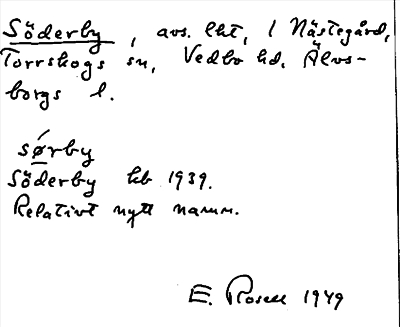 Söderby, avs. lht, i Nästegård,
Torrskogs sn, Vedbo hd. Älvs-
borgs l.
sørby
Söderby kb 1939.
Relativt nytt namn.
E. Rosell 1949